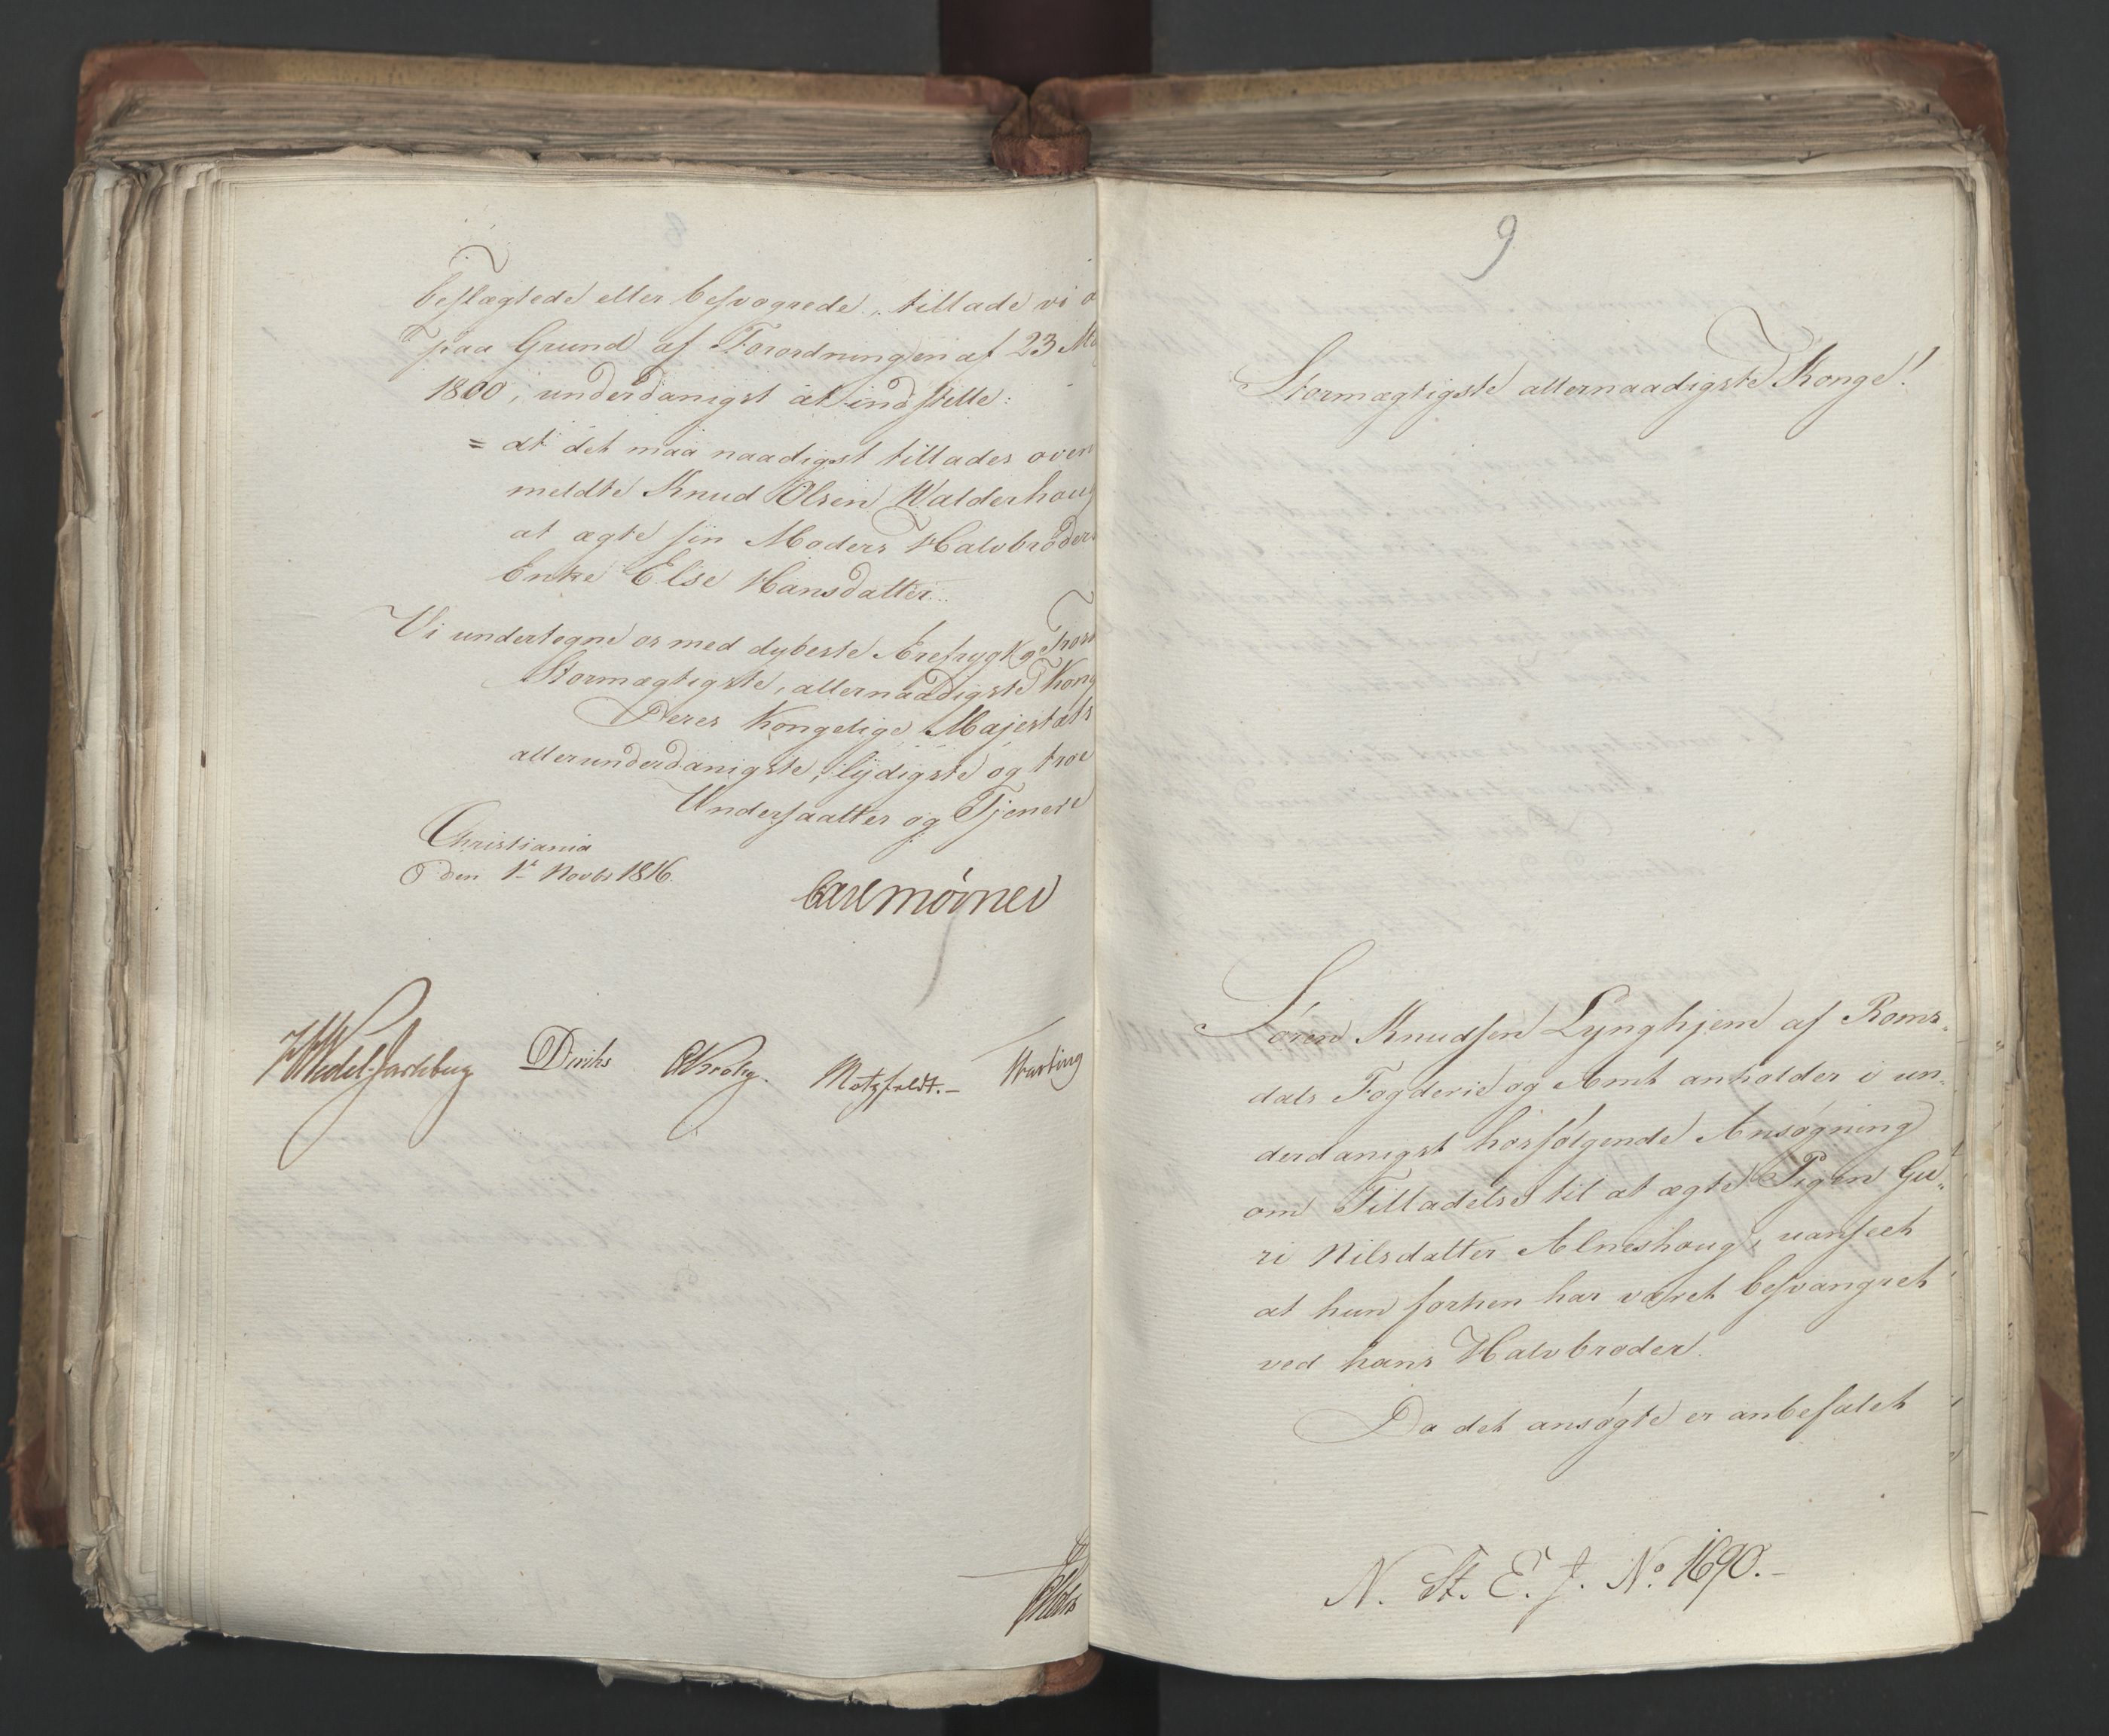 beslægtede eller besvogrede, tillade vi o
paa Grund af Forordningen af 23 Ma
1800, underdanigst at indstille:
= at det maa naadigst tillades oven
meldte Knud Olsen Walderhoug
at ægte sin Moders Halvbroders
Enke Else Hansdatter.
Vi undertegne os med dybeste Ærefrygt og Troes
Stormægtigste, allernaadigste Kong
Deres Kongelige Majestæts
allerunderdanigste, lydigste og troe
Undersaatter og Tjenere
Christiania
den 1ste Novbr 1816.
Carl Mörner
HWedel-Jarlsberg Diriks CKrohg. Motzfeldt.-
9
Stormægtigste allernaadigste Konge!
Sören Knudsen Lynghjem af Roms-
dals Fogderie og Amt anholder i un-
derdanigst hosfölgende Ansögning
om Tilladelse til at ægte Pigen Gu-
ri Nilsdatter Alneshoug, uanseet
at hun forhen har været besvangret
ved hans Halvbroder.
Da det ansögte er anbefalet
N. St. E. J. No. 1690.-